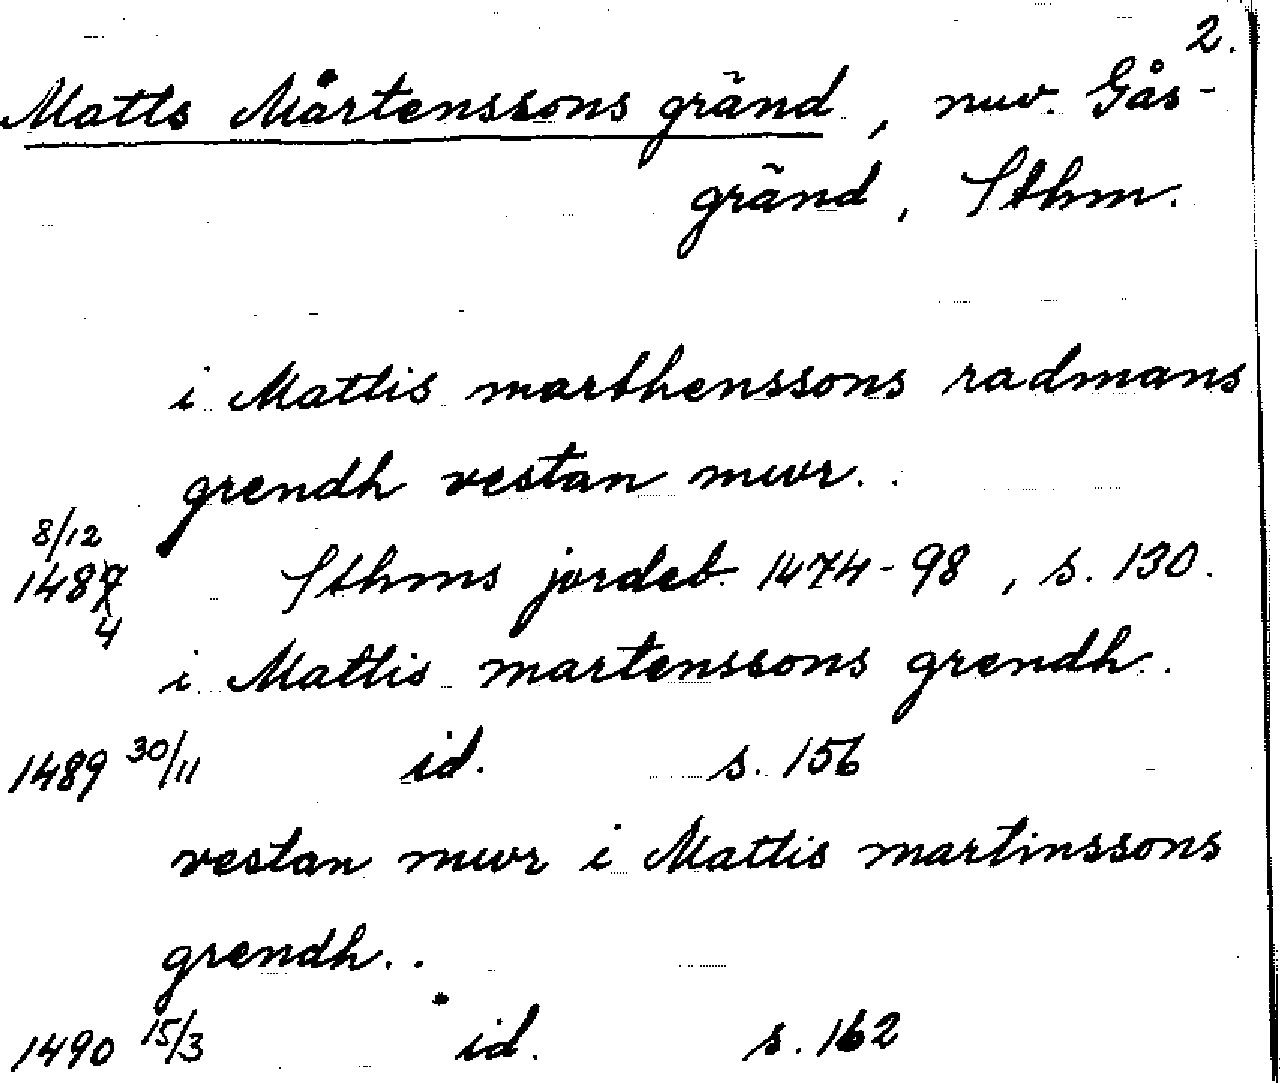 2.
Matts Mårtenssons gränd, nuv. Gås-
gränd, Sthm.
i Mattis marthenssons radmans
grendh vestan mwr..
8/12
1487 Sthms jordeb. 1474-98, s. 130.
4
i Mattis martenssons grendh.
1489 30/11 id. s. 156
vestan mwr i Mattis martinssons
grendh..
1490 15/3 id. s. 162